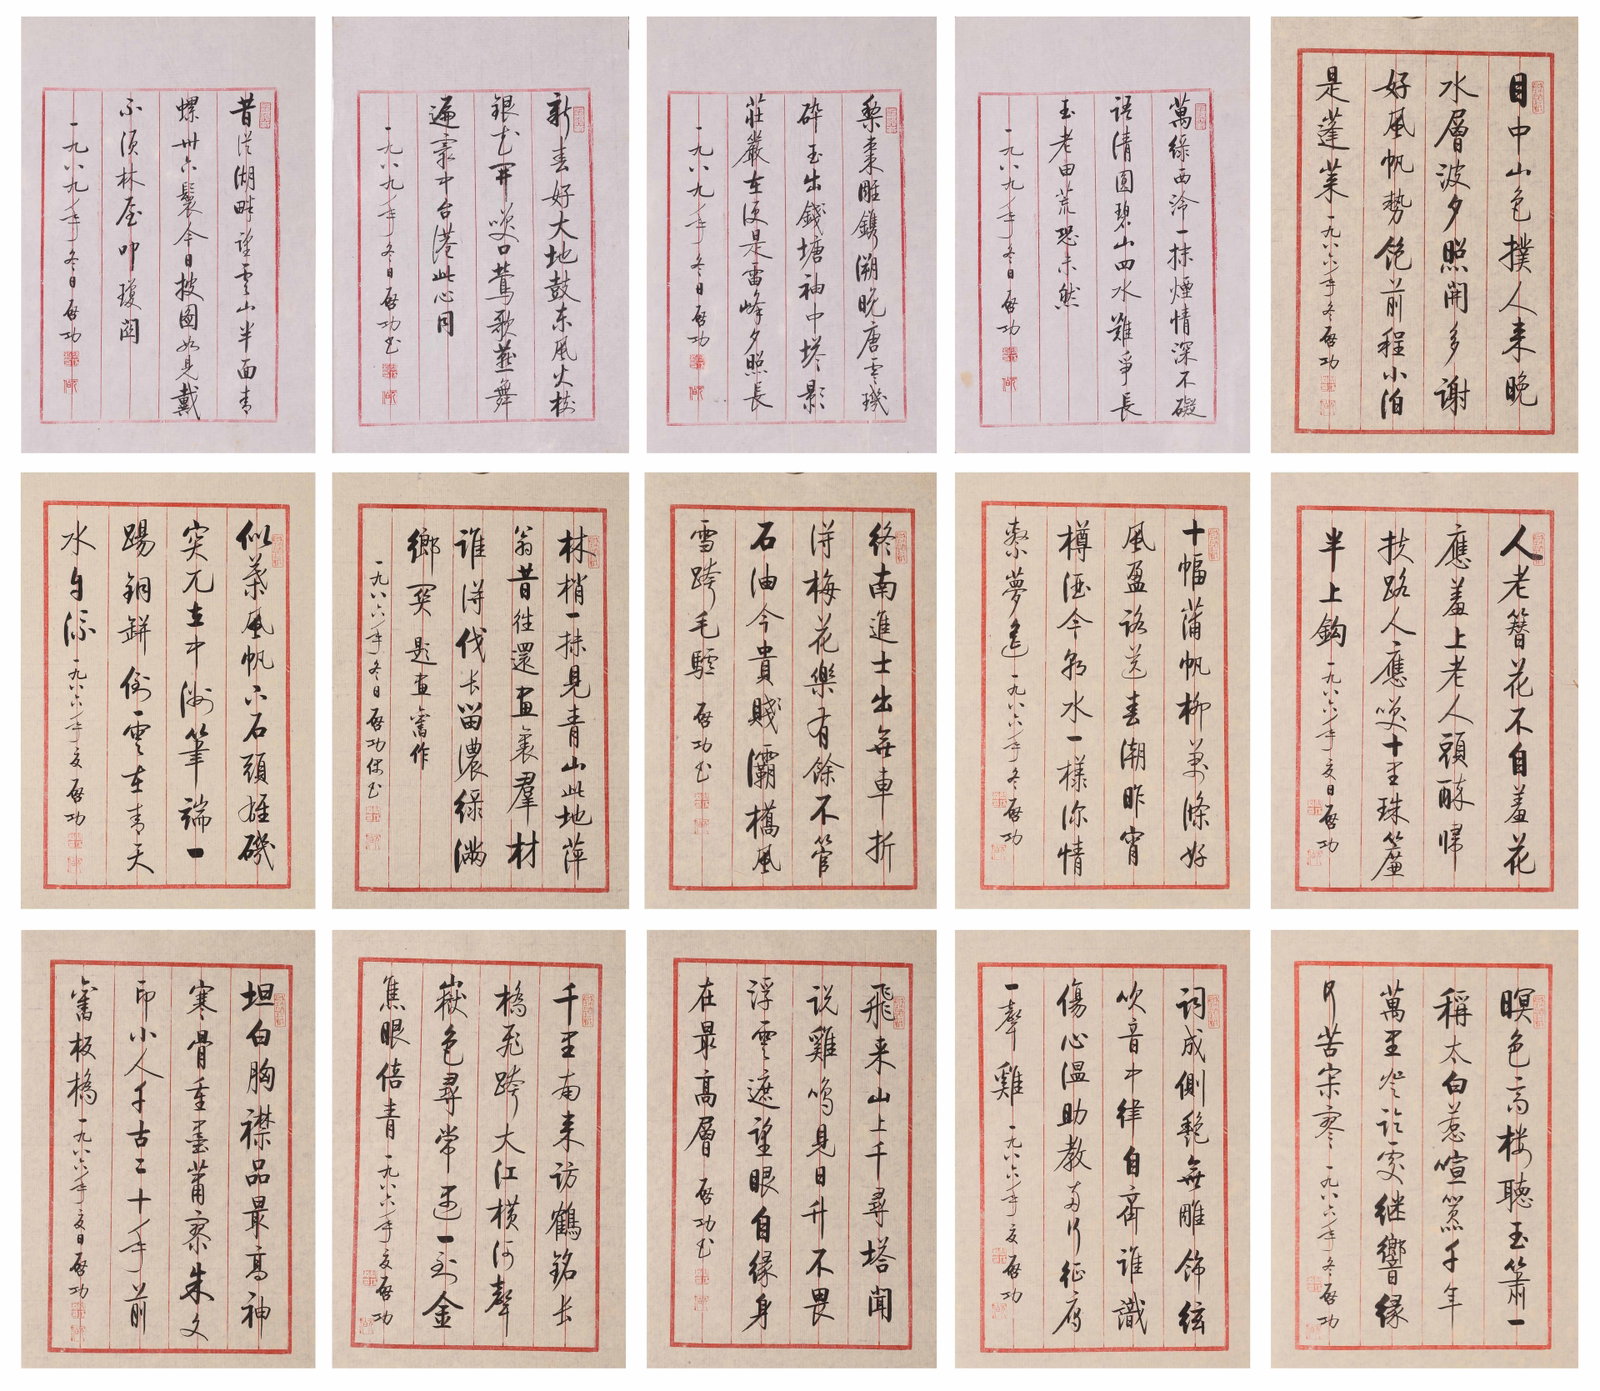 目中山色撲人来晚
水層波夕照開多謝
好風帆勢飽前程小泊
是蓬萊 一九八六年冬 啟功
萬綠西泠一抹煙情深不礙
語清圓碧山四水難爭長
玉老田荒恐未然
一九八九年冬日啟功
梨棗雕鐫溯晚唐零璣
碎玉出錢塘袖中塔影
莊嚴在便是雷峰夕照長
一九八九年冬日啟功
新春好大地鼓東風火樹
銀花開笑口鶯歌燕舞
遍寰中台港此心同
一九八九年冬日啟功書
昔從湖畔望雲山半面青
螺卅六鬟今日披圖如見戴
不須林屋叩瓊關
一九八九年冬日啟功
人老簪花不自羞花
應羞上老人頭醉歸
扶路人應笑十里珠簾
半上鈎 一九八六年夏日啟功
十幅蒲帆柳萬條好
風盈路送春潮昨宵
樽酒今朝水一樣深情
繫夢遙 一九八六年冬啟功
終南進士出無車折
得梅花樂有餘不管
石油今貴賤灞橋風
雪跨毛驢 啟功書
林梢一抹見青山此地萍
翁昔往還畫裏羣材
誰得伐长留濃綠滿
鄉関 題畫舊作
一九八六年冬日啟功書
似葉風帆小石頭雄磯
突兀立中洲筆端一
踢銅缾倒雲在青天
水自流 一九八六年夏 啟功
暝色高樓聽玉簫一
稱太白惹喧嚣千年
萬里處继響緣
何苦寂寥 一九八六年冬啟功
詞成側艷無雕飾絃
吹音中律自齊誰識
傷心温助教兩行征雁
一聲雞 一九八六年夏啟功
飛来山上千尋塔聞
説雞鳴見日升不畏
浮雲遮望眼自緣身
在最高層 啟功書
千里南来訪鶴銘长
橋飛跨大江橫河聲
嶽色尋常遇一到金
焦眼倍青 一九八六年夏啟功
坦白胸襟品最高神
寒骨重墨蕭寥朱文
印小人千古二十年前
舊板橋 一九八六年夏日啟功